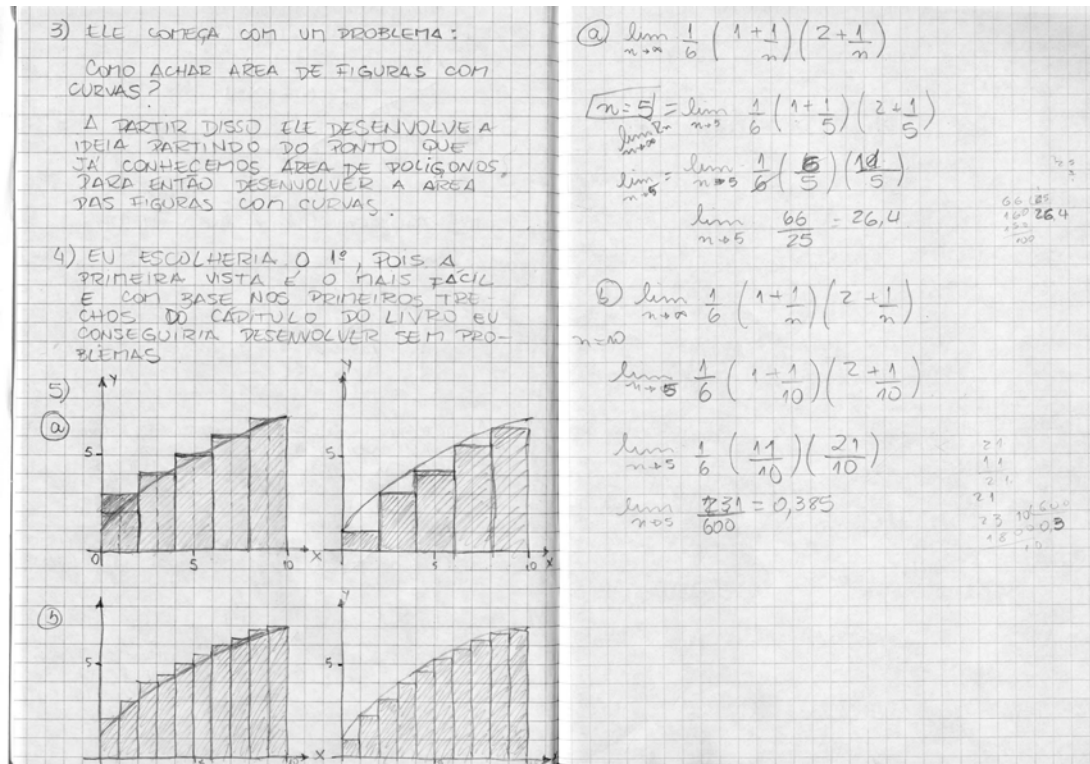 3) ELE COMEÇA COM UM PROBLEMA:
COMO ACHAR AREA DE FIGURAS COM
CURVAS?
A PARTIR DISSO ELE DESENVOLVE A
IDEIA PARTINDO DO PONTO QUE
JÁ CONHECEMOS ÁREA DE POLÍGONOS,
PARA ENTÃO DESENVOLVER A AREA
DAS FIGURAS COM CURVAS.
4) EU ESCOLHERIA O 1º, POIS A
PRIMEIRA VISTA É O MAIS FÁCIL
E COM BASE NOS PRIMEIROS TRE-
CHOS DO CAPÍTULO DO LIVRO EU
CONSEGUIRIA DESENVOLVER SEM PRO-
BLEMAS
5)
a
Y
5
0 5 10 X
Y
5
5 10 X
b
Y
5
X
Y
5
a lim n→∞ 1/6 (1+1/n)(2+1/n)
n=5 = lim n→5 1/6 (1+1/5)(2+1/5)
lim n→∞ Rn
lim n→5 = lim n→5 1/6 (6/5)(11/5)
lim n→5 66/25 = 26,4
b lim n→∞ 1/6 (1+1/n)(2+1/n)
n=10
lim n→5 1/6 (1+1/10)(2+1/10)
lim n→5 1/6 (11/10)(21/10)
lim n→5 231/600 = 0,385
26,4
21
11
21
21